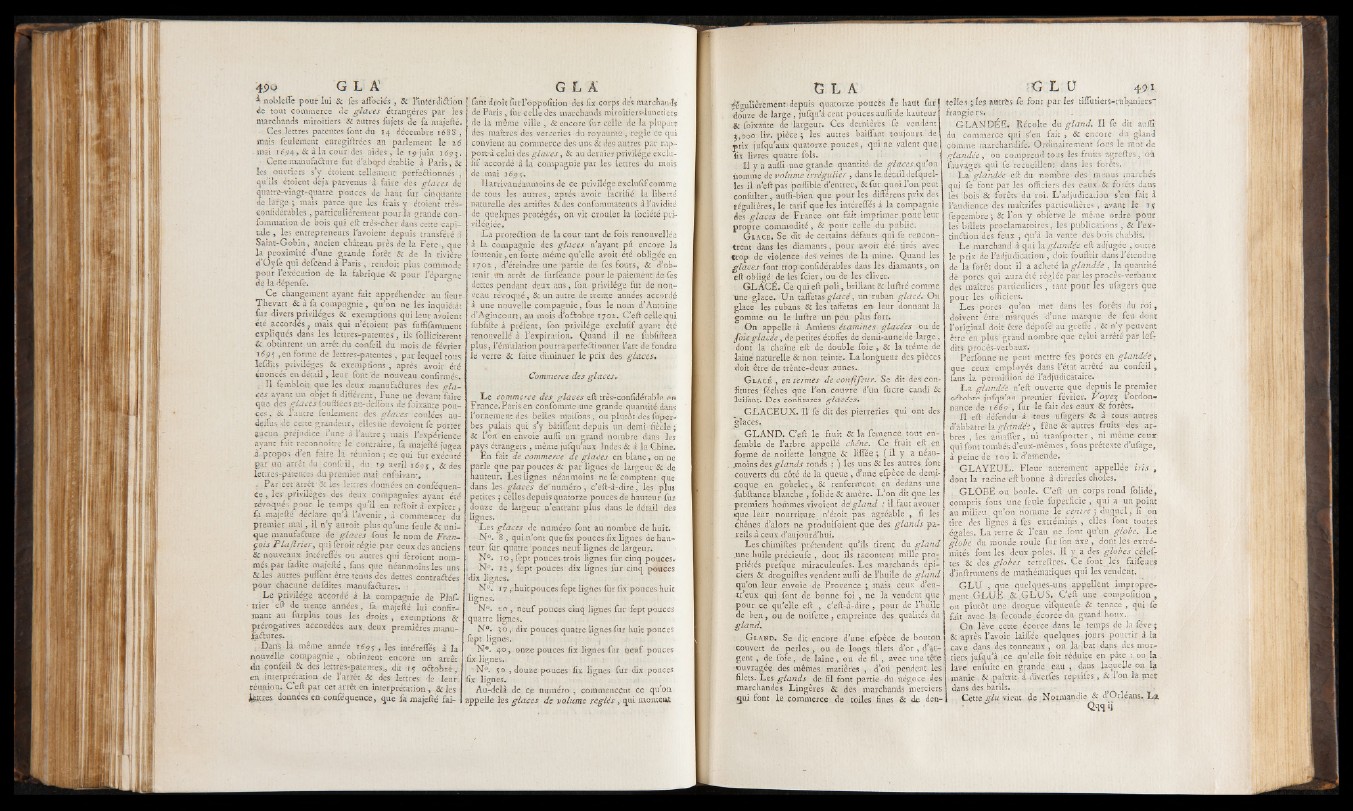 490 G L A
à noblesse pour lui & ses associés, & l'interdiction
de tout commerce de glaces étrangères par les
marchands miroitiers & autres sujets de sa majesté.
Ces lettres patentes sont du 14 décembre 1688,
mais seulement enregistrées au parlement le 26
mai 1694, & à la cour des aides, le 19 juin 1693.
Cette manufacture fut d'abord établie à Paris, &
les ouvriers s'y étoient tellement perfectionnés,
qu'ils étoient déjà parvenus à faire des glaces de
quatre-vingt-quatre pouces de haut sur cinquante
de large; mais parce que les frais y étoient très-
considérables, particulièrement pour la grande con-
sommation de bois qui est très-cher dans cette capi-
tale, les entrepreneurs l'avoient depuis transféré à
Saint-Gobin, ancien château près de la Fere, que
la proximité d'une grande forêt & de la rivière
d'Oyse qui descend à Paris, rendoit plus commode
pour l'exécution de la fabrique & pour l'épargne
de la dépense.
Ce changement ayant fait appréhender au sieur
Thevart & à sa compagnie, qu'on ne les inquiétât
sur divers priviléges & exemptions qui leur avoient
été accordés, mais qui n'étoient pas suffisamment
expliqués dans les lettres-patentes, ils sollicitèrent
& obtinrent un arrêt du conseil du mois de février
1693, en forme de lettres-patentes, par lequel tous
lesdits priviléges & exemptions, après avoir été
énoncés en détail, leur sont de nouveau confirmés.
Il sembloit que les deux manufactures des gla-
ces ayant un objet si différent, l'une ne devant faire
que des glaces soufflées au-dessous de soixante pou-
ces, & l'autre seulement des glaces coulées au-
dessus de cette grandeur, elles ne devoient se porter
aucun préjudice l'une à l'autre; mais l'expérience
ayant fait reconnoître le contraire, sa majesté jugea
à propos d'en faire la réunion; ce qui fut exécuté
par un arrêt du conseil, du 19 avril 1695, & des
lettres-patentes du premier mai ensuivant.
Par cet arrêt & les lettres données en conséquen-
ce, les priviléges des deux compagnies ayant été
révoqués pour le temps qu'il en restoit à expirer,
sa majesté déclare qu'à l'avenir, à commencer du
premier mai, il n'y auroit plus qu'une seule & uni-
que manufacture de glaces sous le nom de Fran-
çois Plastrier, qui seroit régie par ceux des anciens
& nouveaux intéressés ou autres qui seroient nom-
més par sadite majesté, sans que néanmoins les uns
& les autres pussent être tenus des dettes contractées
pour chacune desdites manufactures.
Le privilége accordé à la compagnie de Plas-
trier est de trente années, sa majesté lui confir-
mant au surplus tous les droits, exemptions &
prérogatives accordées aux deux premières manu-
factures.
Dans la même année 1695, les intéressés à la
nouvelle compagnie, obtinrent encore un arrêt
du conseil & des lettres-patentes, du 15 octobre,
en interprétation de l'arrêt & des lettres de leur
réunion. C'est par cet arrêt en interprétation, & les
lettres données en conséquence, que sa majesté fai-
G L A
sant droit sur l'opposition des six corps des marchands
de Paris, sur celle des marchands miroitiers-lunetiers
de la même ville, & encore sur celle de la plupart
des maîtres des verreries du royaume, règle ce qui
convient au commerce des uns & des autres par rap-
port à celui des glaces, & au dernier privilége exclu-
sif accordé à la compagnie par les lettres du mois
de mai 1695.
Il arriva néanmoins de ce privilége exclusif comme
de tous les autres, après avoir sacrifié la liberté
naturelle des artistes & des consommateurs à l'avidité
de quelques protégés, on vit crouler la société pri-
vilégiée.
La protection de la cour tant de fois renouvellée
à la compagnie des glaces n'ayant pû encore la
soutenir, en sorte même qu'elle avoit été obligée en
1701, d'éteindre une partie de ses fours, & d'ob-
tenir un arrêt de surséance pour le paiement de ses
dettes pendant deux ans, son privilége fut de nou-
veau révoqué, & un autre de trente années accordé
à une nouvelle compagnie, sous le nom d'Antoine
d'Agincourt, au mois d'octobre 1702. C'est celle qui
subsiste à présent, son privilége exclusif ayant été
renouvellé à l'expiration. Quand il ne subsistera
plus, l'émulation pourra perfectionner l'art de fondre
le verre & faire diminuer le prix des glaces.
Commerce des glaces.
Le commerce des glaces est très-considérable en
France. Paris en consomme une grande quantité dans
l'ornement des belles maisons, ou plutôt des super-
bes palais qui s'y bâtissent depuis un demi-siècle;
& l'on en envoie aussi un grand nombre dans les
pays étrangers, même jusqu'aux Indes & à la Chine.
En fait de commerce de glaces en blanc, on ne
parle que par pouces & par lignes de largeur & de
hauteur. Les lignes néanmoins ne se comptent que
dans les glaces de numéro, c'est-à-dire, les plus
petites; celles depuis quatorze pouces de hauteur sur
douze de largeur n'entrant plus dans le détail des
lignes.
Les glaces de numéro sont au nombre de huit.
N°. 8, qui n'ont que six pouces six lignes de hau-
teur sur quatre pouces neuf lignes de largeur.
N°. 10, sept pouces trois lignes sur cinq pouces.
N°. 12, sept pouces dix lignes sur cinq pouces
dix lignes.
N°. 17, huit pouces sept lignes sur six pouces huit
lignes.
N°. 20, neuf pouces cinq lignes sur sept pouces
quatre lignes.
N°. 30, dix pouces quatre lignes sur huit pouces
sept lignes.
N°. 40, onze pouces six lignes sur neuf pouces
six lignes.
N°. 50, douze pouces six lignes sur dix pouces
six lignes.
Au-delà de ce numéro, commencent ce qu'on
appelle les glaces de volume reglés, qui montent
G L A
régulièrement depuis quatorze pouces de haut sur
douze de large, jusqu'à cent pouces aussi de hauteur
& soixante de largeur. Ces dernières se vendent
3,000 liv. pièce; les autres baissant toujours de
prix jusqu'aux quatorze pouces, qui ne valent que
six livres quatre sols.
Il y a aussi une grande quantité de glaces qu'on
nomme de volume irrégulier, dans le détail desquel-
les il n'est pas possible d'entrer, & sur quoi l'on peut
consulter, aussi-bien que pour les différens prix des
régulières, le tarif que les intéressés à la compagnie
des glaces de France ont fait imprimer pour leur
propre commodité, & pour celle du public.
GLACE. Se dit de certains défauts qui se rencon-
trent dans les diamants, pour avoir été tirés avec
trop de violence des veines de la mine. Quand les
glaces sont trop considérables dans les diamants, on
est obligé de les scier, ou de les cliver.
GLACÉ. Ce qui est poli, brillant & lustré comme
une glace. Un taffetas glacé, un ruban glacé. On
glace les rubans & les taffetas en leur donnant la
gomme ou le lustre un peu plus fort.
On appelle à Amiens étamines glacées ou de
soie glacée, de petites étoffes de demi-aune de large,
dont la chaîne est de double soie, & la trême de
laine naturelle & non teinte. La longueur des pièces
doit être de trente-deux aunes.
GLACÉ, en termes de confiseur. Se dit des con-
fitures sèches que l'on couvre d'un sucre candi &
luisant. Des confitures glacées.
GLACEUX. Il se dit des pierreries qui ont des
glaces.
GLAND. C'est le fruit & la semence tout en-
semble de l'arbre appellé chêne. Ce fruit est en
forme de noisette longue & lissée; (il y a néan-
moins des glands ronds :) les uns & les autres sont
couverts du côté de la queue, d'une espèce de demi-
coque en gobelet, & renferment en dedans une
substance blanche, solide & amère. L'on dit que les
premiers hommes vivoient de gland : il faut avouer
que leur nourriture n'étoit pas agréable, si les
chênes d'alors ne produisoient que des glands pa-
reils à ceux d'aujourd'hui.
Les chimistes prétendent qu'ils tirent du gland
une huile précieuse, dont ils racontent mille pro-
priétés presque miraculeuses. Les marchands épi-
ciers & droguistes vendent aussi de l'huile de gland
qu'on leur envoie de Provence; mais ceux d'en-
tr'eux qui sont de bonne foi, ne la vendent que
pour ce qu'elle est, c'est-à-dire, pour de l'huile
de ben, ou de noisette, empreinte des qualités du
gland.
GLAND. Se dit encore d'une espèce de bouton
couvert de perles, ou de longs filets d'or, d'ar-
gent, de soie, de laine, ou de fil, avec une tête
ouvragée des mêmes matières, d'où pendent les
filets. Les glands de fil sont partie du négoce des
marchandes Lingères & des marchands merciers
qui font le commerce de toiles fines & de den-
G L U 491
telles; les autres se font par les tissutiers-rubaniers-
frangiers.
GLANDÉE. Récolte du gland. Il se dit aussi
du commerce qui s'en fait, & encore du gland
comme marchandise. Ordinairement sous le mot de
glandée, on comprend tous les fruits agrestes, ou
sauvages qui se recueillent dans les forêts.
La glandée est du nombre des menus marchés
qui se font par les officiers des eaux & forêts dans
les bois & forêts du roi. L'adjudication s'en fait à
l'audience des maîtrises particulières, avant le 15
septembre; & l'on y observe le même ordre pour
les billets proclamatoires, les publications, & l'ex-
tinction des feux, qu'à la vente des bois chablis.
Le marchand à qui la glandée est adjugée, outre
le prix de l'adjudication, doit souffrir dans l'étendue
de la forêt dont il a acheté la glandée, la quantité
de porcs qui aura été réglée par les procès-verbaux
des maîtres particuliers, tant pour les usagers que
pour les officiers.
Les porcs qu'on met dans les forêts du roi,
doivent être marqués d'une marque de feu dont
l'original doit être déposé au greffe, & n'y peuvent
être en plus grand nombre que celui arrêté par les-
dits procès-verbaux.
Personne ne peut mettre ses porcs en glandée,
que ceux employés dans l'état arrêté au conseil,
sans la permission de l'adjudicataire.
La glandée n'est ouverte que depuis le premier
octobre jusqu'au premier février. Voyez l'ordon-
nance de 1669, sur le fait des eaux & forêts.
Il est défendu à tous usagers & à tous autres
d'abbattre la glandée, fêne & autres fruits des ar-
bres, les amasser, ni transporter, ni même ceux
qui sont tombés d'eux-mêmes, sous prétexte d'usage,
à peine de 100 l. d'amende.
GLAYEUL. Fleur autrement appellée iris,
dont la racine est bonne à diverses choses.
GLOBE ou boule. C'est un corps rond solide,
compris sous une seule superficie, qui a un point
au milieu, qu'on nomme le centre; duquel, si on
tire des lignes à ses extrémités, elles sont toutes
égales. La terre & l'eau ne font qu'un globe. Le
globe du monde roule sur son axe, dont les extré-
mités sont les deux poles. Il y a des globes céles-
tes & des globes terrestres. Ce sont les faiseurs
d'instrumens de mathématiques qui les vendent.
GLU, que quelques-uns appellent impropre-
ment GLUE & GLUS. C'est une composition,
ou plutôt une drogue visqueuse & tenace, qui se
fait avec la seconde écorce du grand houx.
On lève cette écorce dans le temps de la sève;
& après l'avoir laissée quelques jours pourrir à la
cave dans des tonneaux, on la bat dans des mor-
tiers jusqu'à ce qu'elle soit réduite en pâte : on la
lave ensuite en grande eau, dans laquelle on la
manie & paîtrit à diverses reprises, & l'on la met
dans des barils.
Cette glu vient de Normandie & d'Orléans. La
Qqq ij